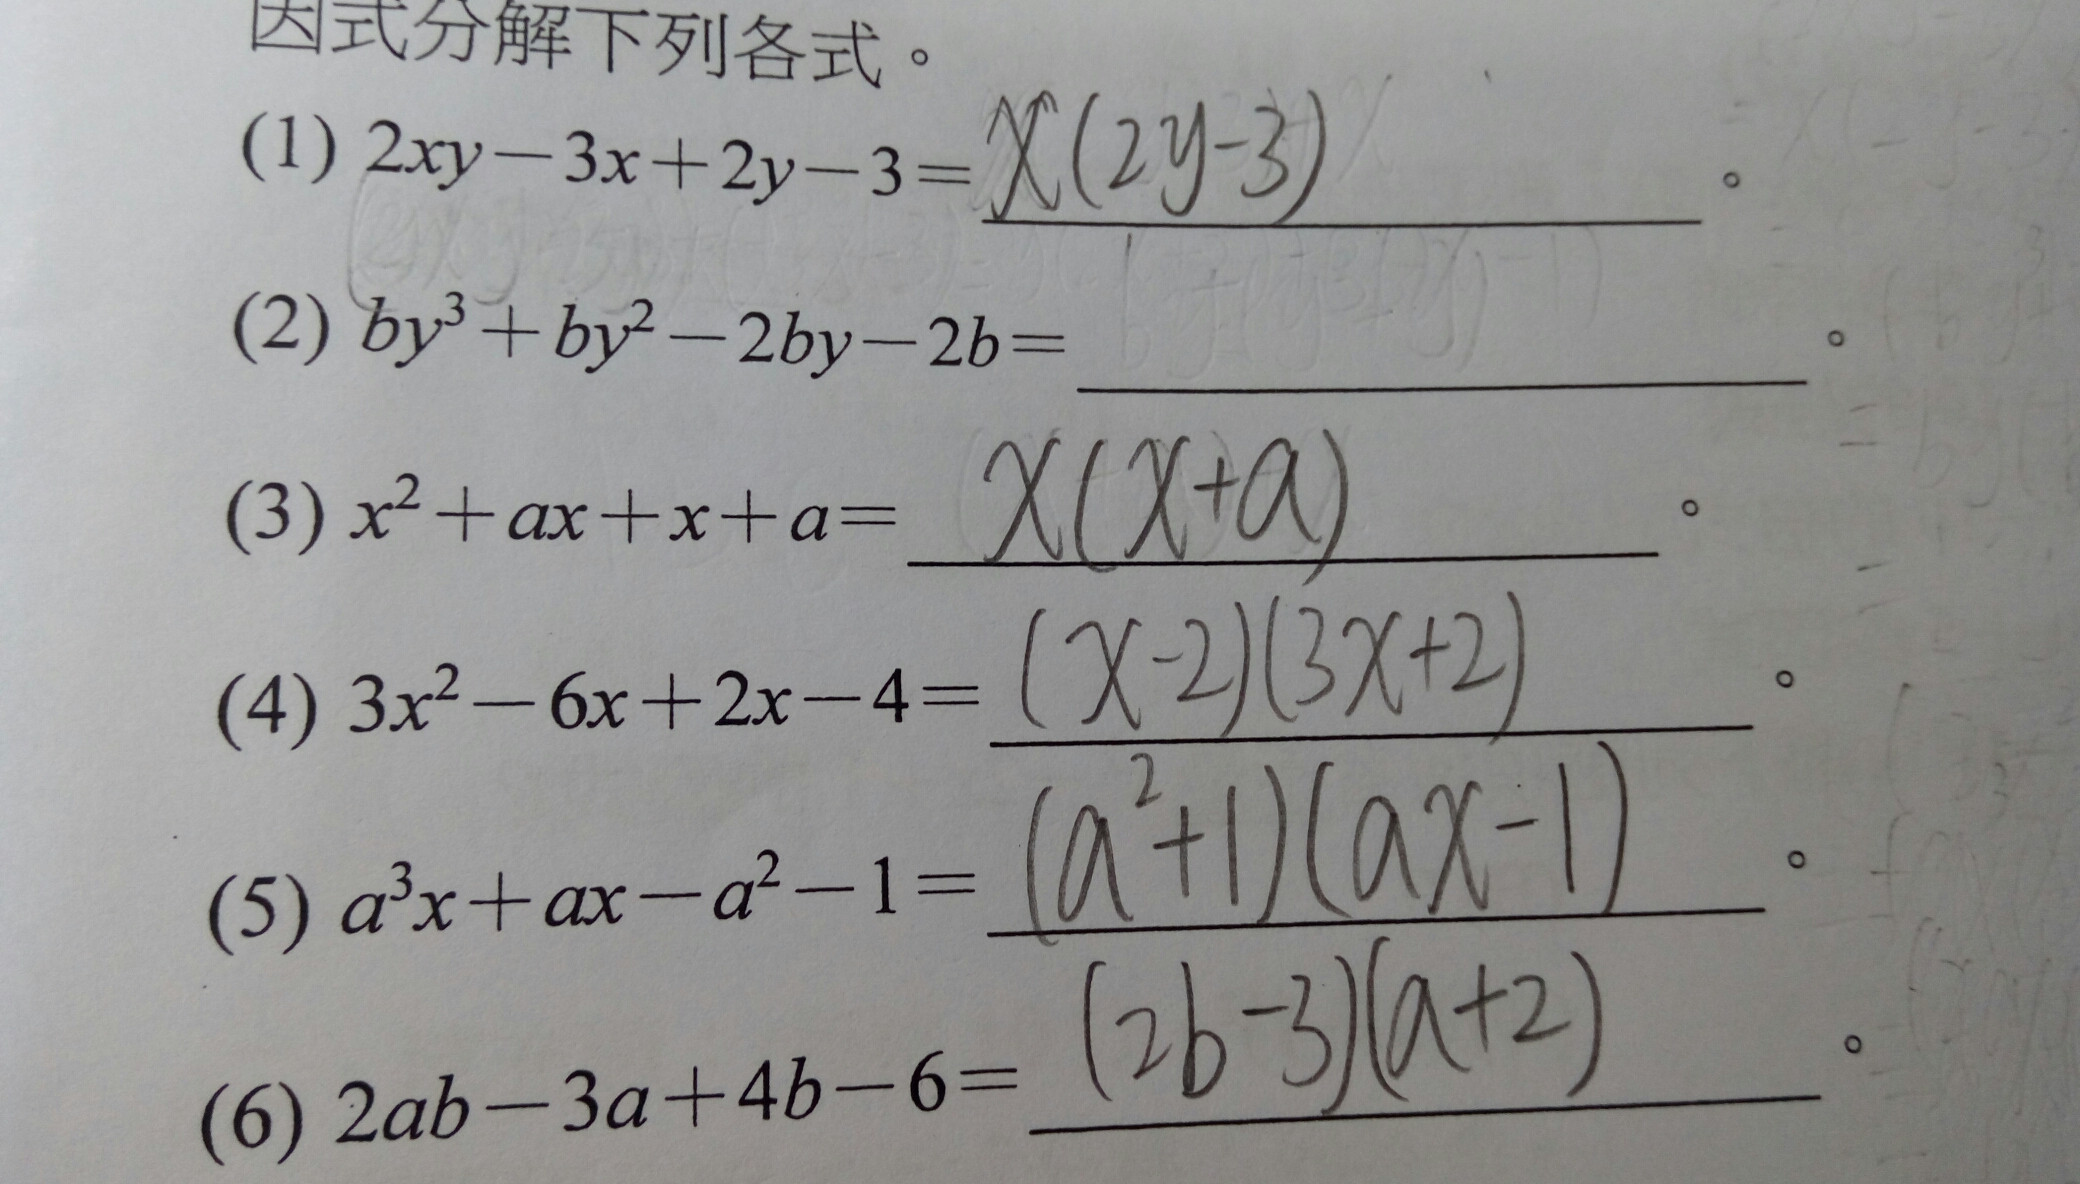 因式分解下列各式。
(1) 2xy－3x＋2y－3＝x(2y-3)。
(2) by³＋by²－2by－2b＝。
(3) x²＋ax＋x＋a＝x(x+a)。
(4) 3x²－6x＋2x－4＝(x-2)(3x+2)。
(5) a³x＋ax－a²－1＝(a²+1)(ax-1)。
(6) 2ab－3a＋4b－6＝(2b-3)(a+2)。